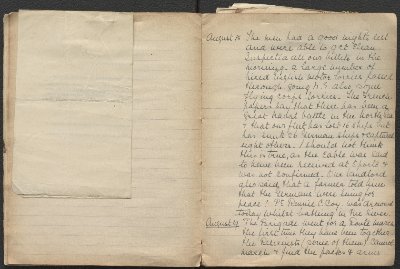 August 18 The men had a good nights rest
and were able to get clean.
Inspected all our billets in the
morning. a large number of
hired English motor lorries passed
through going N. & also some
flying corps lorries. The French
papers say that there has been a
great naval battle in the North Sea
& that our fleet has lost 16 ships but
has sunk 26 German ships & captured
eight others. I should not think
this is true, as the cable was said
to have been received at 
was not confirmed. Our landlord
also said that a farmer told him
that the Germans were suing for
peace! Pte Rennie C Coy. was drowned
today whilst bathing in the river.
August 19 The Brigade went for a route march
the first time they have been together
the reservists (some of them) cannot
march & find the packs & arms